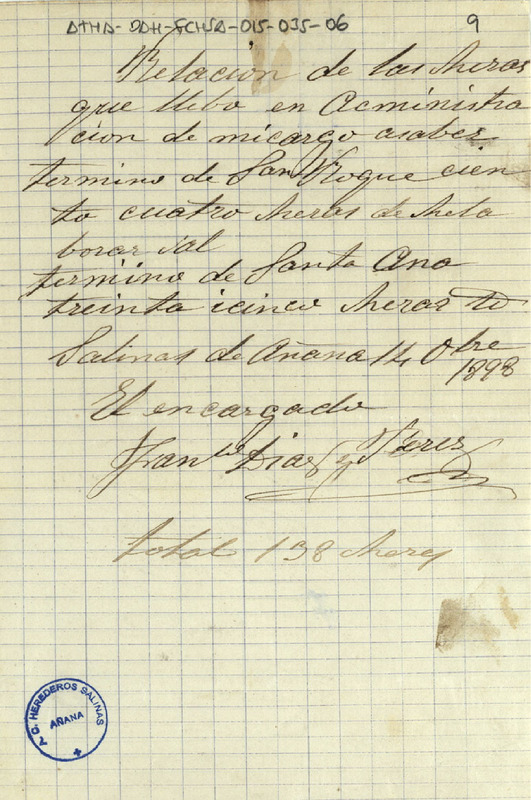 ATHA-DAH-FCHSA-015-035-06
9
Relacion de las heras
que llebo en Acministra
cion de micargo asaber
termino de San Roque cien
to cuatro heras de hela
borar sal
termino de Santa Ana
treinta icinco heras
Salinas de Añana 14 Obre
1898
El encargado
Franco Diaz y Perez
total 138 heras
A. C. HEREDEROS SALINAS
AÑANA